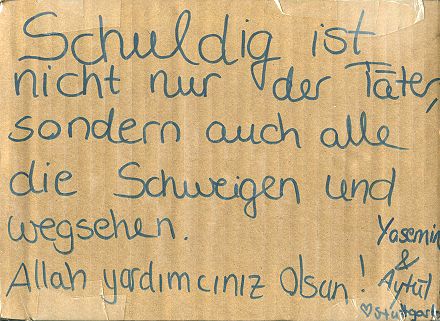 Schuldig ist
nicht nur der Täter,
sondern auch alle
die Schweigen und
wegsehen.
Allah yardımcınız Olsun!
Yasemin
&
Aytül
♡Stuttgart